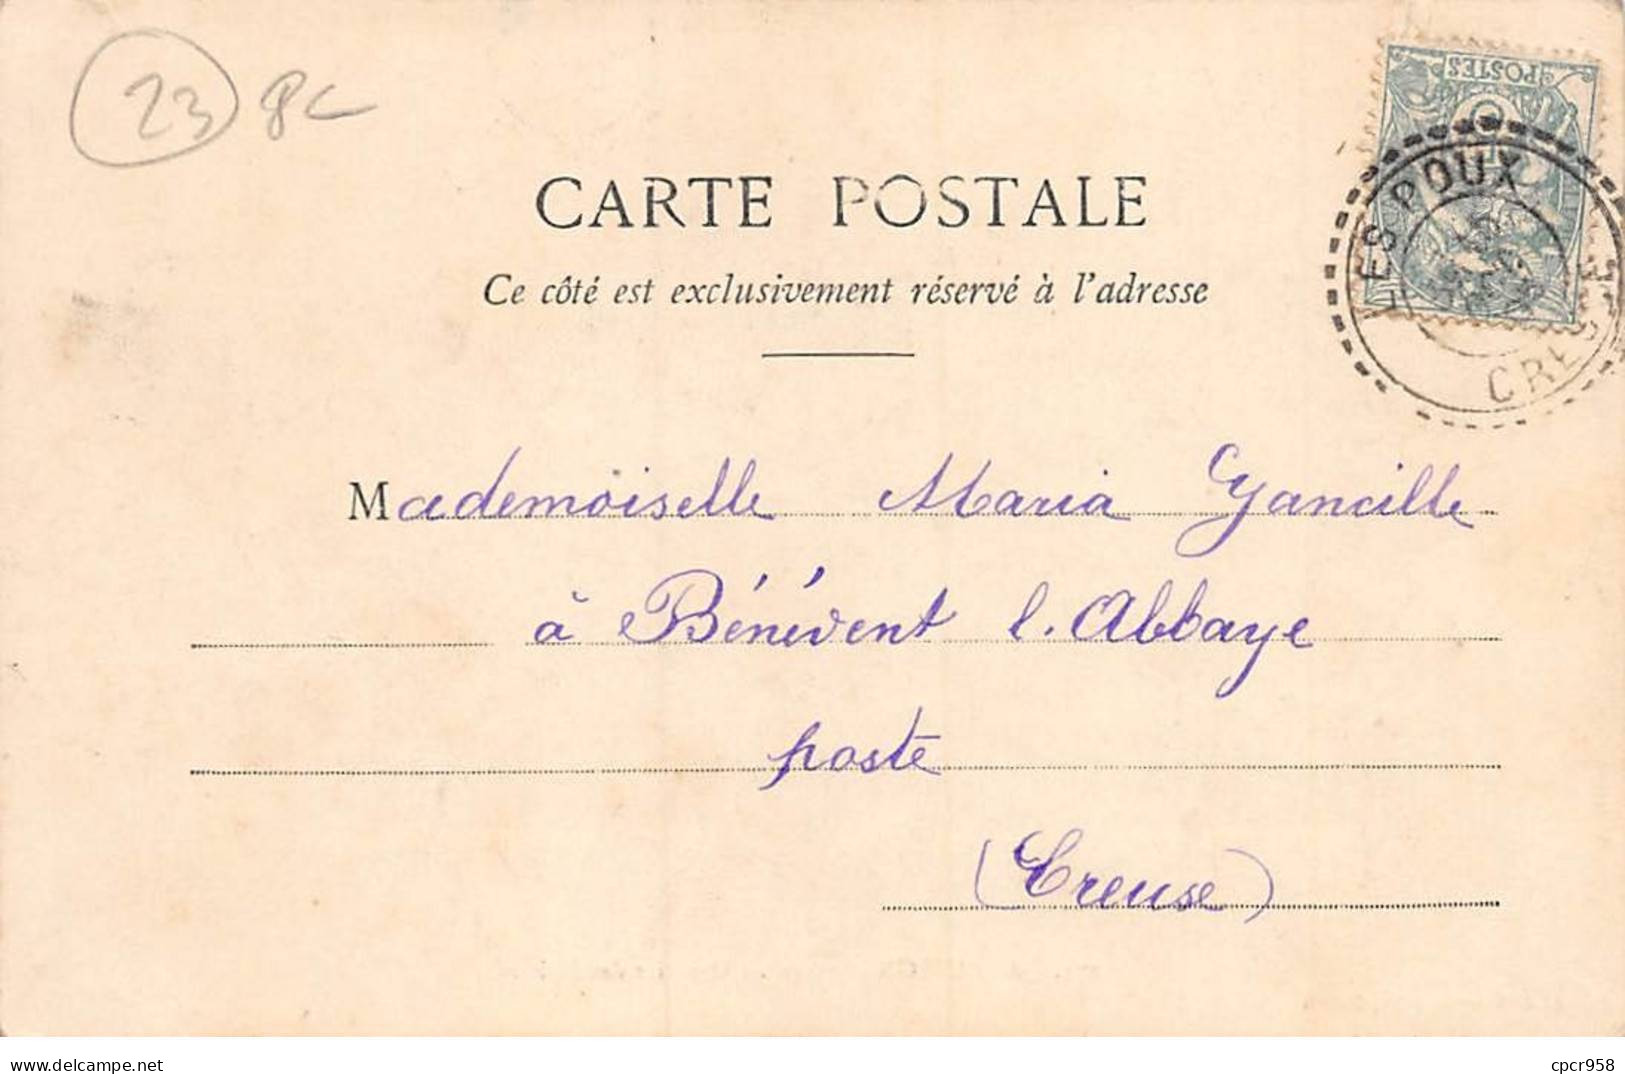 23 8c
POSTES
LES POUX
CREUSE
CARTE POSTALE
Ce côté est exclusivement réservé à l'adresse
Mademoiselle Maria Yancille
à Bénévent l. Abbaye
poste
(Creuse)
www.delcampe.net
cpcr958